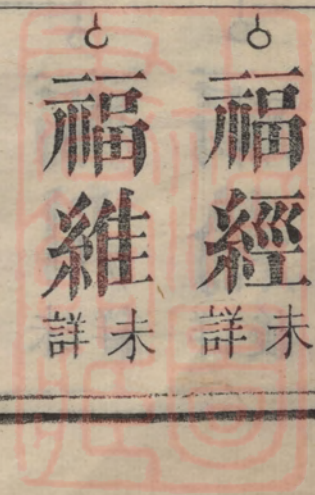 福經 未詳
福維 未詳